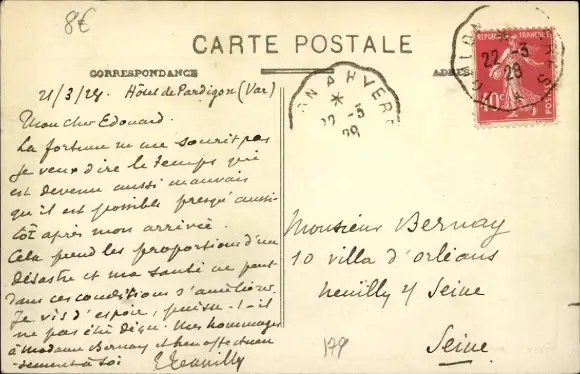 8€
CARTE POSTALE
CORRESPONDANCE
REPUBLIQUE FRANÇAISE
10c
POSTES
22 -3
28
ON A HYERE
22 -3
28
21/3/28. Hôtel de Pardigon (Var)
Mon cher Edouard.
La fortune ne me sourit pas
je veux dire le temps qui
est devenu aussi mauvais
qu'il est possible presque aussi-
tôt après mon arrivée.
Cela prend les proportions d'un
désastre et ma santé ne peut
dans ces conditions s'améliorer.
Je vis d'espoir, puisse-t-il
ne pas être déçu. Mes hommages
à Madame Bernay et bien affectueu-
sement à toi
Monsieur Bernay
10 villa d'orléans
Neuilly s/ Seine
Seine
179